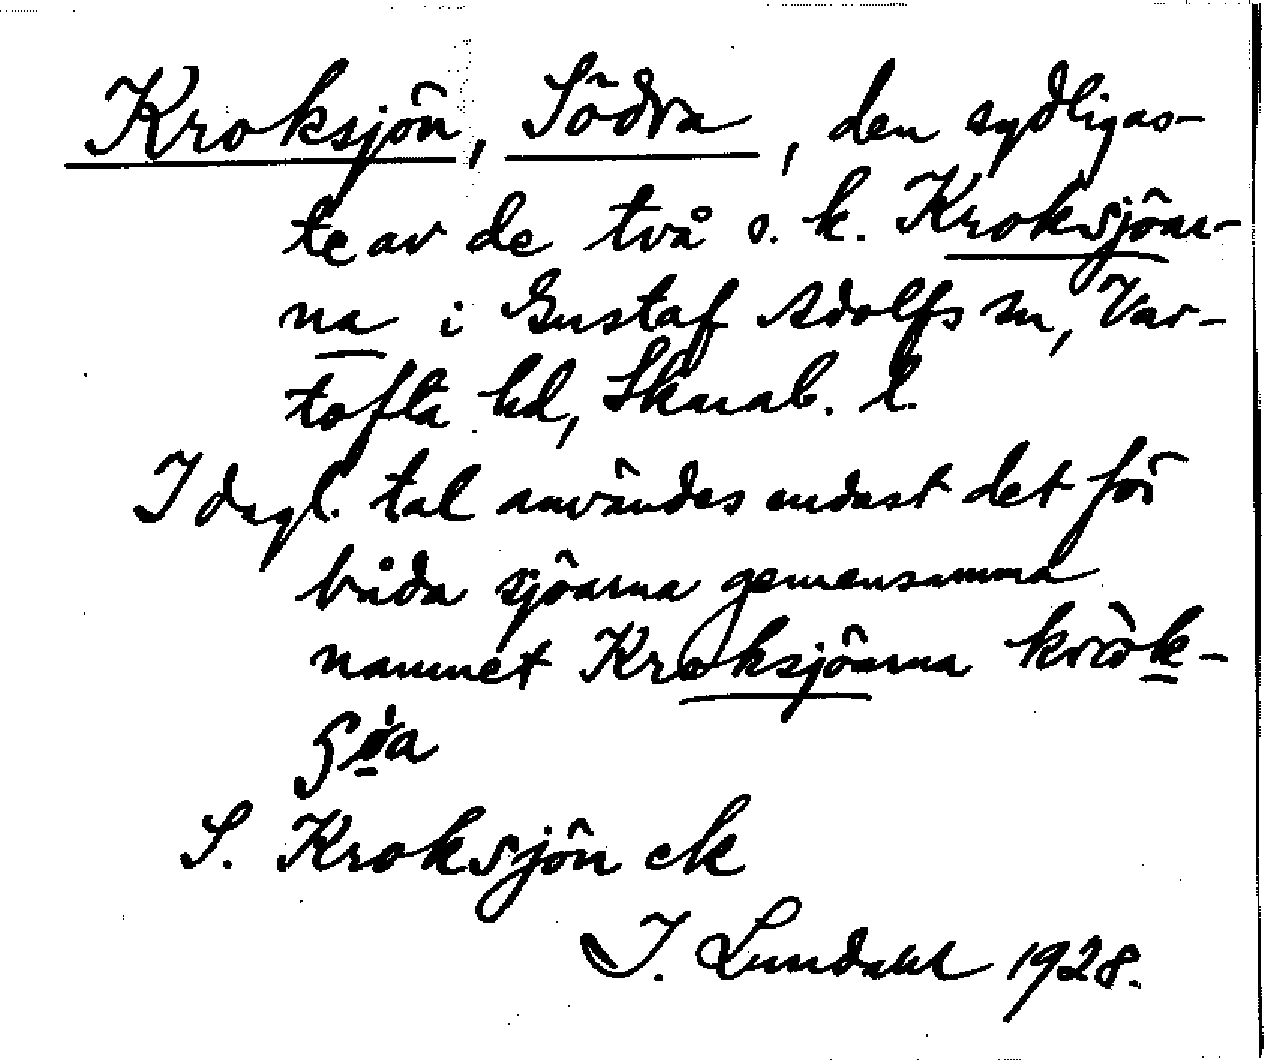 Kroksjön, Södra, den sydligas-
te av de två s. k. Kroksjöar-
na i Gustaf Adolfs sn, Var-
tofta hd, Skarab. l.
I dagl. tal användes endast det för
båda sjöarna gemensamma
namnet Kroksjöarna
S. Kroksjön ek
I. Lundahl 1928.